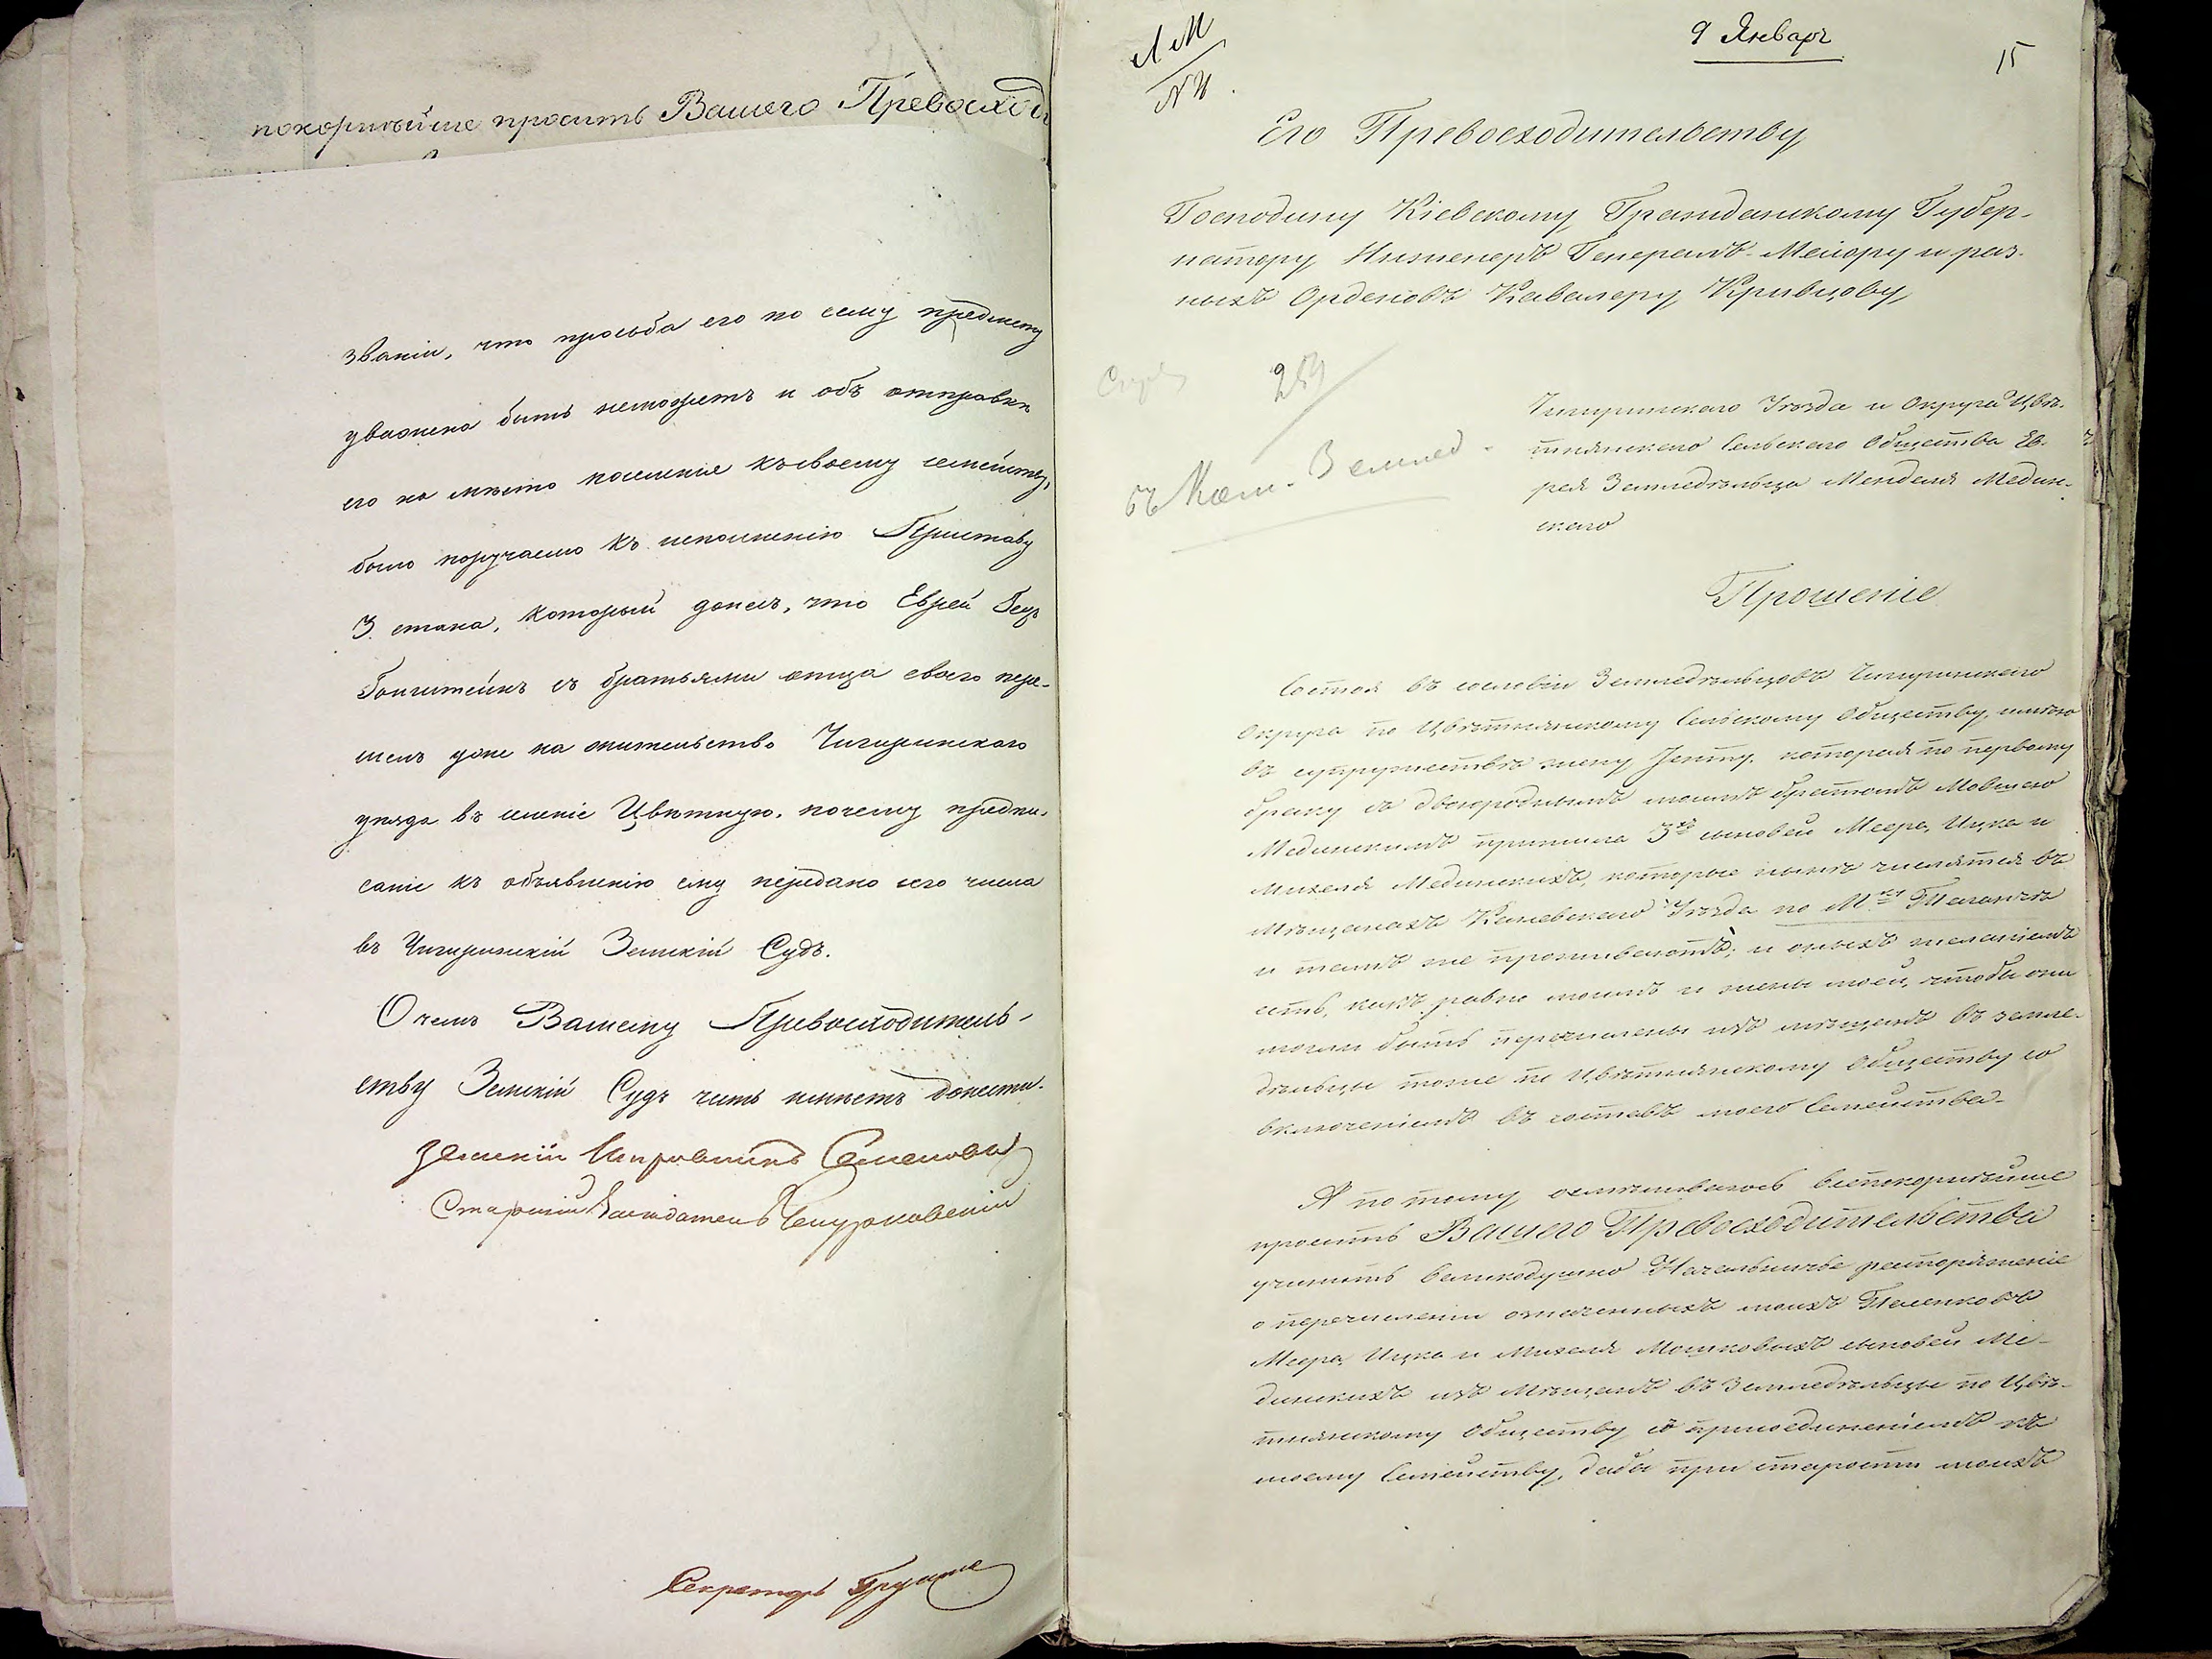 покорнѣйше просить Вашего Превосход
званіи, что просьба его по сему предмету
уважена быть неможетъ и объ отправкѣ
его на мѣсто поселенія къ своему семейству,
было поручаемо къ исполненію Приставу
3. стана, который донесъ, что Еврей
съ братьями отца своего пере-
шелъ уже на жительство Чигиринскаго
уѣзда въ селеніе Цвѣтную, почему предпи-
саніе къ объявленію ему передано сего числа
въ Чигиринскій Земскій Судъ.
О чемъ Вашему Превосходитель-
ству Земскій Судъ честь имѣетъ донести.
Земскій Исправникъ Семеновъ
Старшій Засѣдатель
Секретарь
9 Январь
15
Его Превосходительству
Господину Кіевскому Гражданскому Губер-
натору Инженеръ Генералъ-Маіору и раз-
ныхъ Орденовъ Кавалеру Кривцову
259
Чигиринскаго Уѣзда и Округа Цвѣ-
тнянскаго Сельскаго Общества Ев-
рея Земледѣльца Менделя Медин-
скаго
Прошеніе
Состоя въ сословіи Земледѣльцовъ Чигиринскаго
Округа по Цвѣтнянскому Сельскому Обществу, имѣю
въ супружествѣ жену Ренту, которая по первому
браку съ двоюроднымъ моимъ братомъ Мовшею
Мединскимъ прижила 3хъ сыновей Меера, Ицка и
Михеля Мединскихъ, которые нынѣ числятся въ
Мѣщанахъ Каневскаго Уѣзда по Мку Таганчѣ
и тамъ же проживаютъ; и оныхъ желаніемъ
есть, какъ равно моимъ и жены моей, чтобы они
могли быть перечислены изъ мѣщанъ въ земле-
дѣльцы тоже по Цвѣтнянскому Обществу со
включеніемъ въ составъ моего Семейства.
А по тому осмѣливаюсь всепокорнѣйше
просить Вашего Превосходительства
учинить Великодушно Начальничье распоряженіе
о перечисленіи означенныхъ моихъ
Меера, Ицка и Михеля Мошковыхъ сыновей Ме-
динскихъ изъ Мѣщанъ въ Земледѣльцы по Цвѣ-
тнянскому Обществу съ присоединеніемъ къ
моему Семейству, дабы при старости моихъ